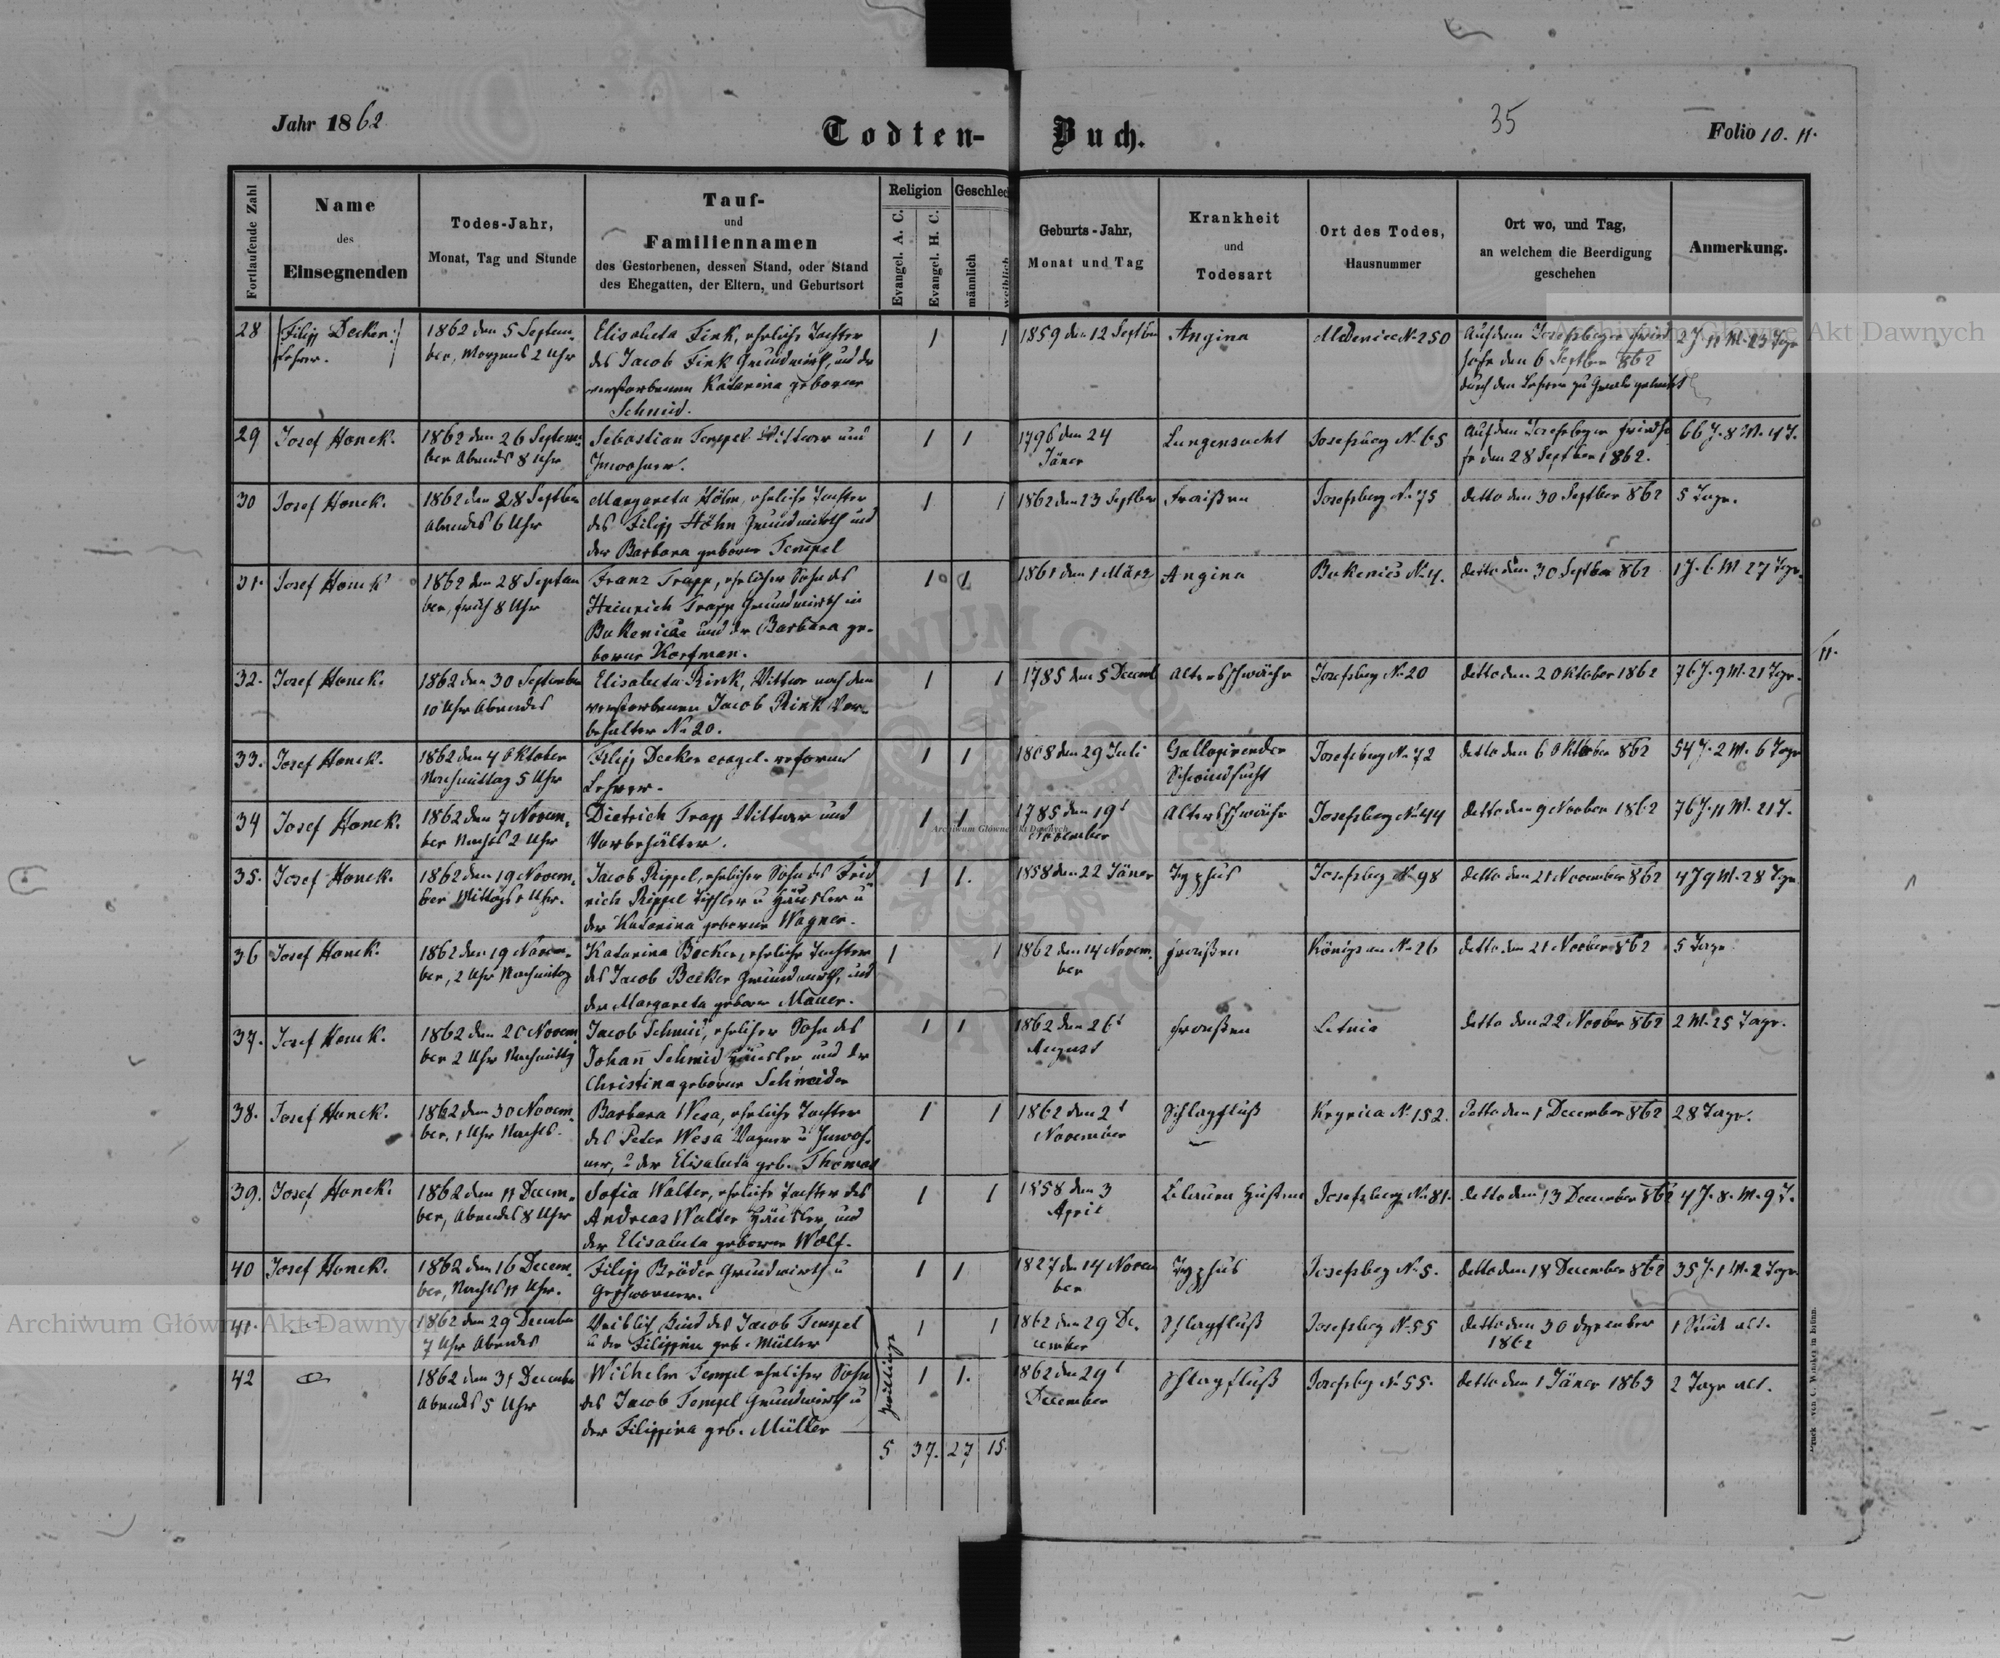 Jahr 1862
Todten-Buch.
35
Folio 10. 11.
Fortlaufende Zahl
Name
des
Einsegnenden
Todes-Jahr,
Monat, Tag und Stunde
Tauf-
und
Familiennamen
des Gestorbenen, dessen Stand, oder Stand
des Ehegatten, der Eltern, und Geburtsort
Religion
Evangel. A. C.
Evangel. H. C.
Geschlec
männlich
weiblich
Geburts-Jahr,
Monat und Tag
Krankheit
und
Todesart
Ort des Todes,
Hausnummer
Ort wo, und Tag,
an welchem die Beerdigung
geschehen
Anmerkung.
28
Filipp Decker
Lehrer.
1862 den 5 Septem-
ber, Morgens 2 Uhr
Elisabeta Fink, eheliche Tochter
des Jacob Fink Grundwirth, und der
verstorbenen Katarina geborene
Schmid.
1 1
1859 den 12 Septber
Angina
Medenice No 250
Auf dem Josefsberger Fried
hofe den 6 Septber 862
durch den Lehrer zu Grabe gebracht
2 J. 11 M. 23 Tage
29
Josef Honek.
1862 den 26 Septem-
ber Abends 8 Uhr
Sebastian Tempel Wittwer und
Inwohner.
1 1
1796 den 24
Jäner
Lungensucht
Josefsberg No 65
Auf dem Josefsberger Friedho
fe den 28 September 1862.
66 J. 8 M. 4 T.
30
Josef Honek.
1862 den 28 Septber
Abends 6 Uhr
Margareta Höhn, eheliche Tochter
des Filipp Höhn Grundwirth und
der Barbara geborne Tempel
1 1
1862 den 23 Septber
Fraißen
Josefsberg No 75
detto den 30 Septber 862
5 Tage.
31.
Josef Honek
1862 den 28 Septem
ber, früh 8 Uhr
Franz Trapp, ehelicher Sohn des
Heinrich Trapp Grundwirth in
Bukenice und der Barbara ge-
borne Korfman.
1 1
1861 den 1 März
Angina
Bukenice No 4.
detto den 30 Septber 862
1 J. 6 M 27 Tage.
32.
Josef Honek.
1862 den 30 September
10 Uhr Abends
Elisabeta Rink, Wittwe nach dem
verstorbenen Jacob Rink Vor-
behalter No 20.
1 1
1785 den 5 Decemb
Altersschwäche
Josefsberg No 20
detto den 2 Oktober 1862
76 J. 9 M. 21 Tage.
11.
33.
Josef Honek.
1862 den 4 Oktober
Nachmittag 5 Uhr
Filipp Decker evagel. reformt
Lehrer.
1 1
1808 den 29 Juli
Gallopirender
Schwindsucht
Josefsberg No 72
detto den 6 Oktober 862
54 J. 2 M. 6 Tage
34
Josef Honek.
1862 den 7 Novem-
ber Nachts 2 Uhr
Dietrich Trapp Wittwer und
Vorbehälter.
1 1
1785 den 19t
November
Altersschwäche
Josefsberg No 44
detto den 9 Novber 1862
76 J. 11 M. 21 T.
35.
Josef Honek.
1862 den 19 Novem-
ber Mittags 1 Uhr.
Jacob Rippel, ehelicher Sohn des Frid
rich Rippel Tischler u Häusler u
der Katarina geborne Wagner.
1 1.
1858 den 22 Jäner
Typhus
Josefsberg No 98
detto den 21 November 862
4 J 9 M. 28 Tage
36
Josef Honek.
1862 den 19 Novem-
ber, 2 Uhr Nachmitag
Katarina Becker, eheliche Tochter
des Jacob Becker Grundwirth, und
der Margareta geborne Mauer.
1 1
1862 den 14 Novem.
ber
Fraißen
Königsau No 26
detto den 21 Novber 862
5 Tage
37.
Josef Honek.
1862 den 20 Novem
ber 2 Uhr Nachmittg
Jacob Schmid, ehelicher Sohn des
Johann Schmid Häusler und der
Christina geborne Schneider
1 1
1862 den 26t
August
Fraißen
Letnia
detto den 22 Novber 862
2 M. 25 Tage.
38.
Josef Honek.
1862 den 30 Novem-
ber, 1 Uhr Nachts.
Barbara Wesa, eheliche Tochter
des Peter Wesa Wagner u Inwoh-
ner, u der Elisabeta geb. Thomas
1 1
1862 den 2t
November
Schlagfluß
Krynica No 152.
Detto den 1 December 862
28 Tage.
39.
Josef Honek.
1862 den 11 Decem-
ber, Abends 8 Uhr
Sofia Walter, eheliche Tochter des
Andreas Walter Häusler, und
der Elisabeta geborne Wolf.
1 1
1858 den 3
April
Josefsberg No 81.
detto den 13 December 862
4 J. 8. M. 9 T.
40
Josef Honek.
1862 den 16 Decem-
ber, Nachts 11 Uhr.
Filipp Bröder Grundwirth u
Geschworner.
1 1
1827 den 14 Novem
ber
Typhus
Josefsberg No 5.
detto den 18 December 862
35 J. 1 M. 2 Tage
41.
1862 den 29 December
7 Uhr Abends
Weiblich Kind des Jacob Tempel
u der Filippina geb. Müller
Zwillinge
1 1
1862 den 29 De.
cember
Schlagfluß
Josefsberg No 55
detto den 30 Dezember
1862
1 Stunde alt.
42
1862 den 31 December
Abends 5 Uhr
Wilhelm Tempel ehelicher Sohn
des Jacob Tempel Grundwirth u
der Filippina geb. Müller
1 1.
1862 den 29t
December
Schlagfluß
Josefsbg No 55.
detto den 1 Jäner 1863
2 Tage alt.
5 37. 27 15.
Archiwum Główne Akt Dawnych
Archiwum Główne Akt Dawnych
Archiwum Główne Akt Dawnych